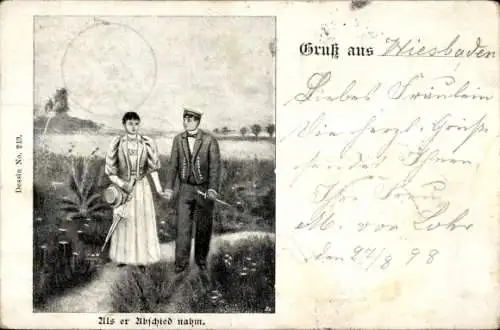 Dessin No. 213.
Als er Abschied nahm.
Gruß aus Wiesbaden
Liebes Fräulein
Die herzl. Grüße
sendet Ihnen
Ihr
M. von Lohr
den 27/8 98